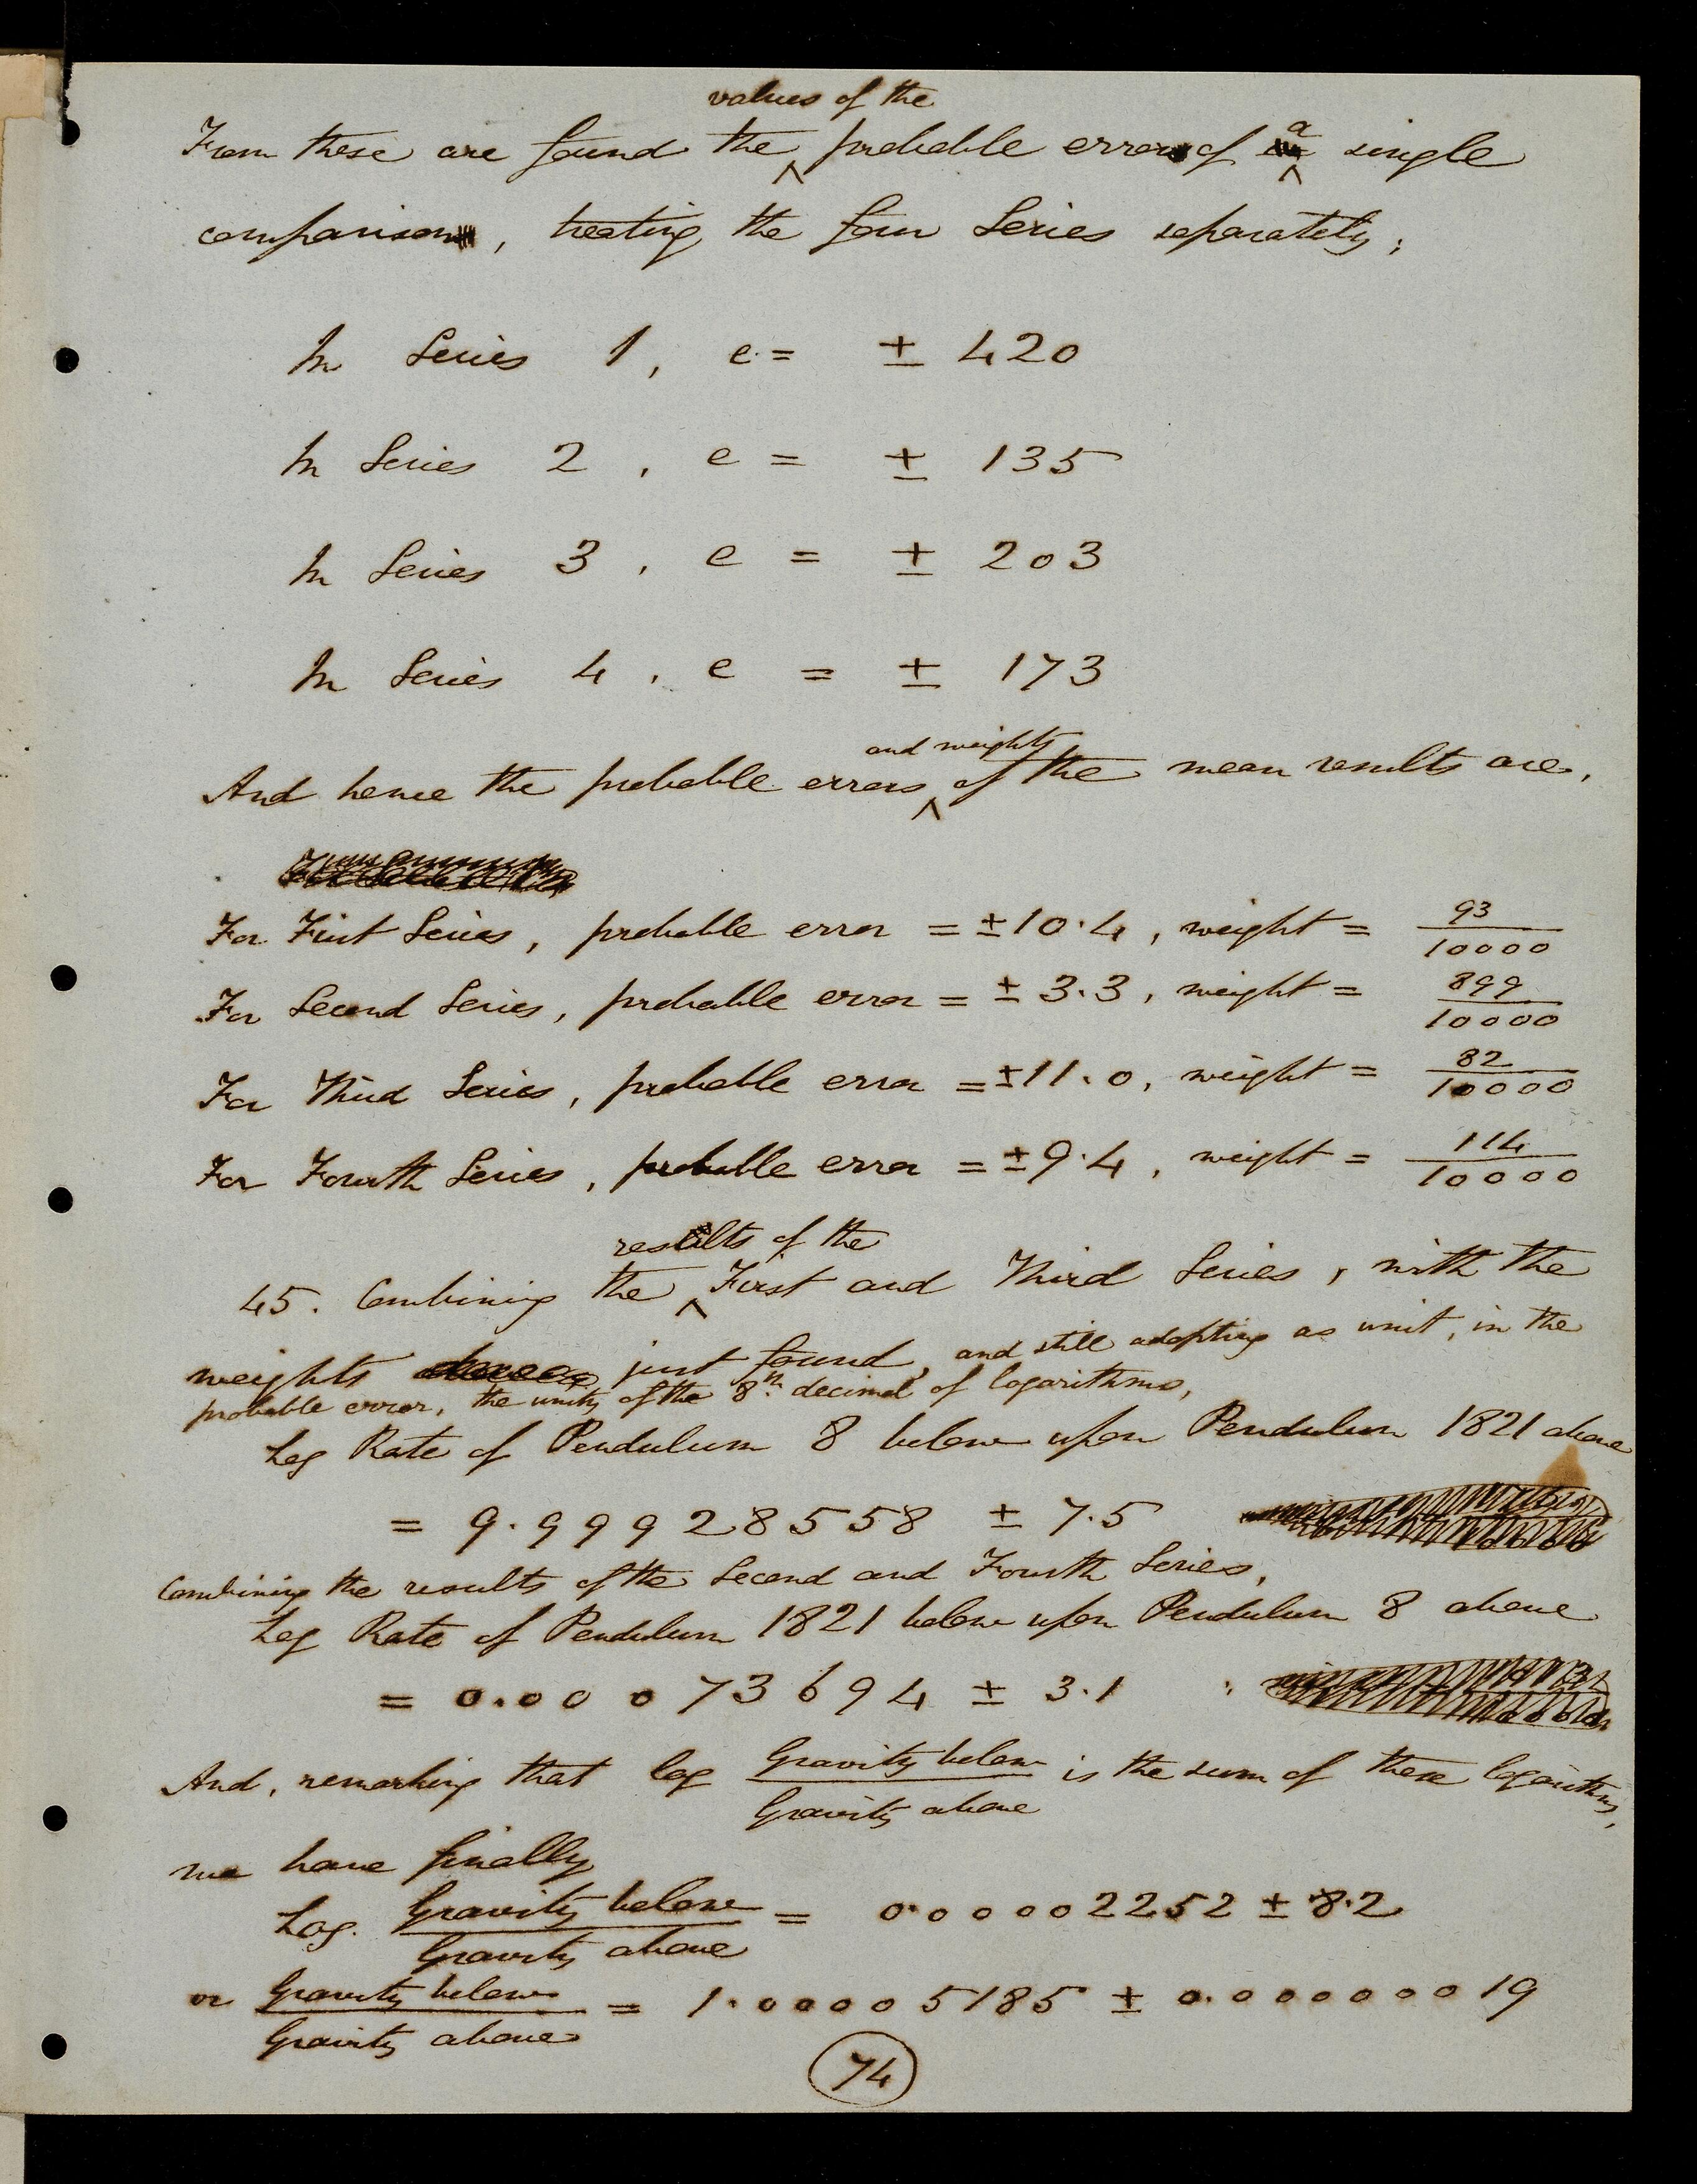 values of the
From these are found the ^ probable errors of ^ a single
comparison, treating the four Series separately;
In Series 1, e = ± 420
In Series 2, e = ± 135
In Series 3, e = ± 203
In Series 4, e = ± 173
and weights
And hence the probable errors ^ of the mean results are,
For First Series, probable error = ±10.4, weight = 93/10000
For Second Series, probable error = ± 3.3, weight = 899/10000
For Third Series, probable error = ±11.0, weight = 82/10000
For Fourth Series, probable error = ±9.4, weight = 114/10000
results of the
45. Combining the ^ First and Third Series, with the
weights just found, and still adopting as unit, in the
probable error, the unity of the 8th decimal of logarithms,
Log Rate of Pendulum 8 below upon Pendulum 1821 above
= 9.99928558 ± 7.5
Combining the results of the Second and Fourth Series,
Log Rate of Pendulum 1821 below upon Pendulum 8 above
= 0.00073694 ± 3.1
And, remarking that log Gravity below/Gravity above is the sum of these logarithms,
we have finally
Log. Gravity below/Gravity above = 0.00002252 ± 8.2
or Gravity below/Gravity above = 1.00005185 ± 0.00000019
74